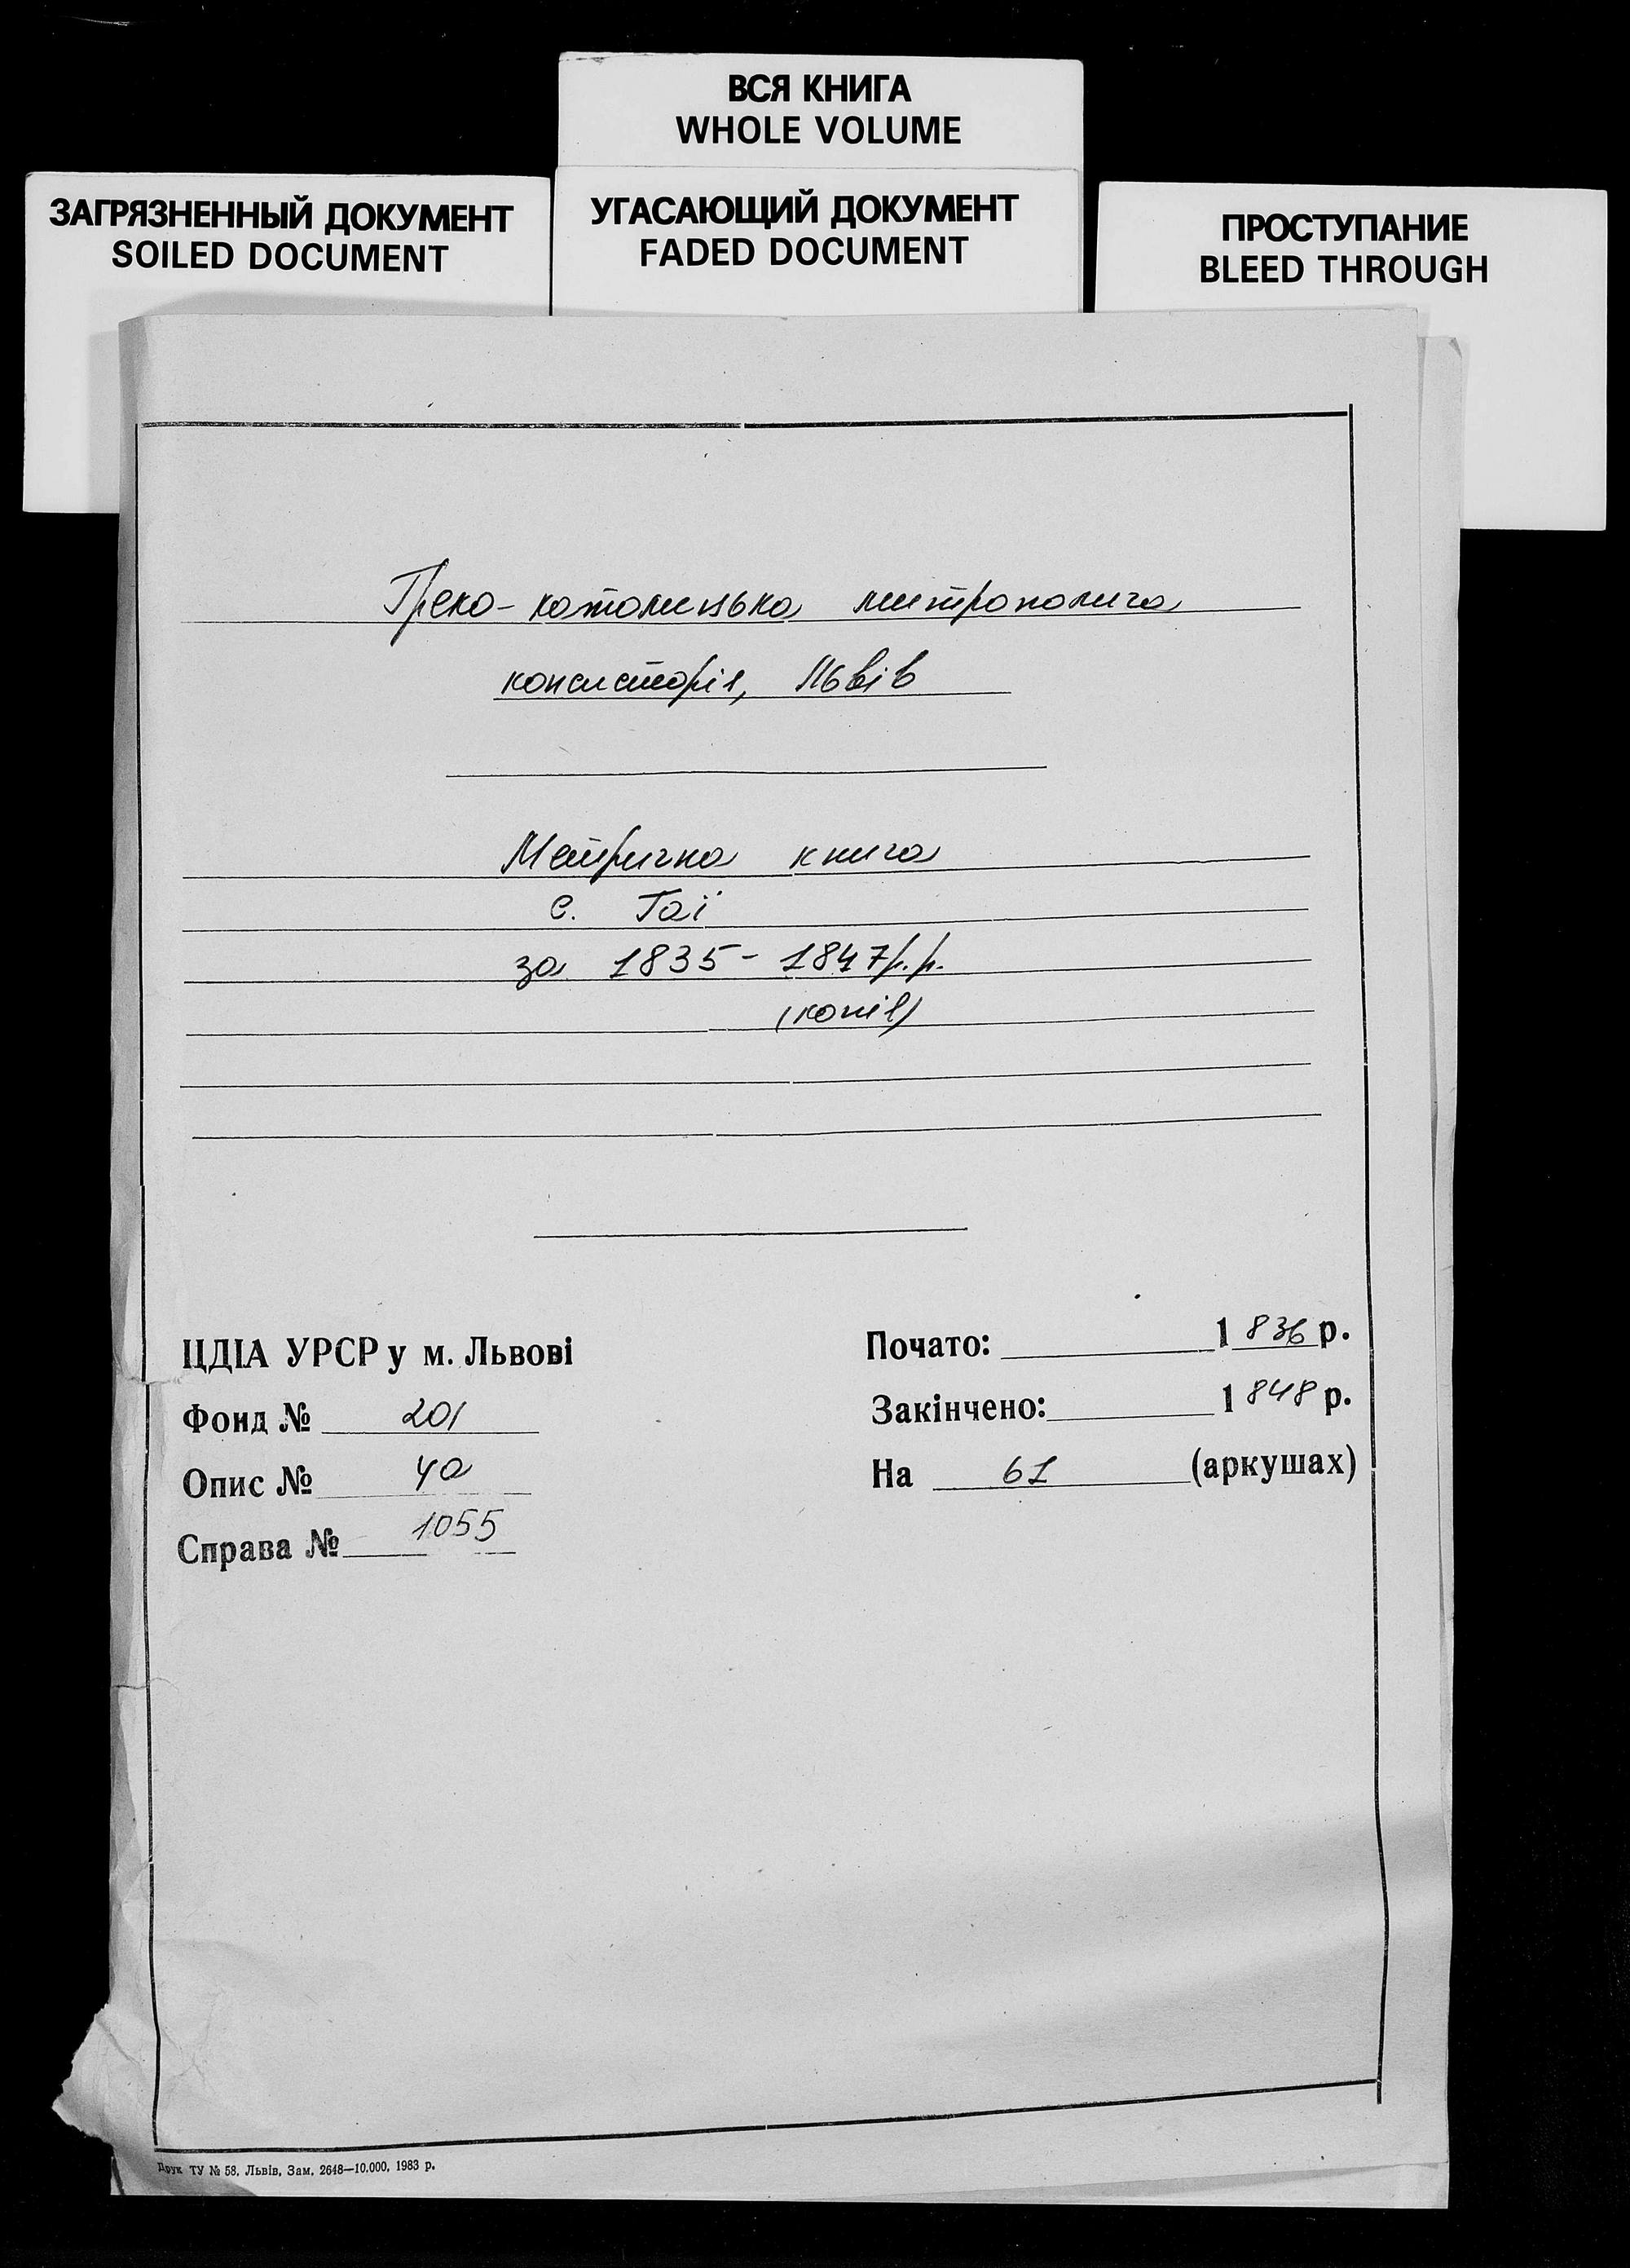 ВСЯ КНИГА
WHOLE VOLUME
ЗАГРЯЗНЕННЫЙ ДОКУМЕНТ
SOILED DOCUMENT
УГАСАЮЩИЙ ДОКУМЕНТ
FADED DOCUMENT
ПРОСТУПАНИЕ
BLEED THROUGH
Греко-католицька митрополича
консисторія, Львів
Метрична книга
с. Гаї
за 1835-1847 р.р.
(копія)
ЦДІА УРСР у м. Львові
Фонд № 201
Опис № 4а
Справа № 1055
Почато: 1836 р.
Закінчено: 1848 р.
На 61 (аркушах)
Друк ТУ № 58, Львів, Зам. 2648—10.000, 1983 р.